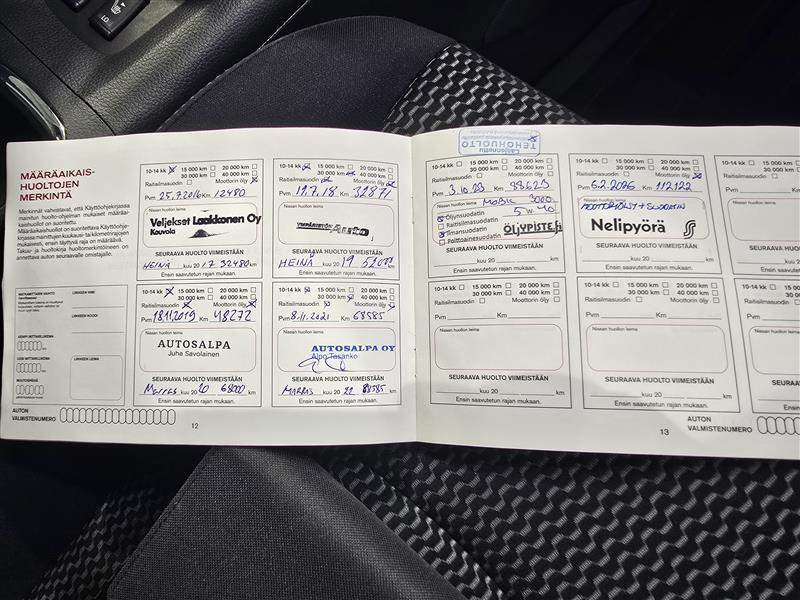 LO
MÄÄRÄAIKAIS-
HUOLTOJEN
MERKINTÄ
Merkinnät vahvistavat, että Käyttöohjekirjassa
mainitut huolto-ohjelman mukaiset määrä-
aikaishuollot on suoritettu.
Määräaikaishuollot on suoritettava Käyttöohje-
kirjassa mainittujen kuukausi- tai kilometrirajojen
mukaisesti, ensin täyttyvä raja on määräävä.
Takuu- ja huoltokirja huoltomerkintöineen on
annettava auton seuraavalle omistajalle.
LIIKKEEN NIMI
LIIKKEEN KOODI
LIIKKEEN LEIMA
AUTON
VALMISTENUMERO
10-14 kk 15 000 km 20 000 km
30 000 km 40 000 km
Raitisilmasuodin Moottorin öljy
Pvm 25.7.2016 Km 12480
Nissan huollon leima
Veljekset Laakkonen Oy
Kouvola
SEURAAVA HUOLTO VIIMEISTÄÄN
HEINÄ kuu 20 17 32480 km
Ensin saavutetun rajan mukaan.
10-14 kk 15 000 km 20 000 km
30 000 km 40 000 km
Raitisilmasuodin Moottorin öljy
Pvm 19.7.18 Km 32871
Nissan huollon leima
SEURAAVA HUOLTO VIIMEISTÄÄN
HEINÄ kuu 20 19 km
Ensin saavutetun rajan mukaan.
15 000 km 20 000 km
30 000 km 40 000 km
Raitisilmasuodin Moottorin öljy
Pvm 18.11.2019 Km 48272
Nissan huollon leima
AUTOSALPA
Juha Savolainen
SEURAAVA HUOLTO VIIMEISTÄÄN
Marras kuu 20 20 68000 km
Ensin saavutetun rajan mukaan.
10-14 kk 15 000 km 20 000 km
30 000 km 40 000 km
Raitisilmasuodin Moottorin öljy
Pvm 8.11.2021 Km 68585
Nissan huollon leima
AUTOSALPA OY
Alpo Tasanko
SEURAAVA HUOLTO VIIMEISTÄÄN
MARRAS kuu 20 22 88585 km
Ensin saavutetun rajan mukaan.
12
Laajennettu
TEHOHUOLTO
10-14 kk 15 000 km 20 000 km
30 000 km 40 000 km
Raitisilmasuodin Moottorin öljy
Pvm 3.10.23 Km
Nissan huollon leima
MOBIL 3000
5W-40
Öljynsuodatin
Raitisilmasuodatin
Ilmansuodatin
Polttoainesuodatin
ÖLJYPISTE.fi
SEURAAVA HUOLTO VIIMEISTÄÄN
kuu 20 km
Ensin saavutetun rajan mukaan.
10-14 kk 15 000 km 20 000 km
30 000 km 40 000 km
Raitisilmasuodin Moottorin öljy
Pvm 6.2.2026 Km 112122
Nissan huollon leima
MOOTTORIÖLJY + SUODATIN
Nelipyörä
SEURAAVA HUOLTO VIIMEISTÄÄN
kuu 20 km
Ensin saavutetun rajan mukaan.
10-14 kk
30
Raitisilmasuodin
Pvm
Nissan huollon leima
SEURAAVA
Ensin
10-14 kk 15 000 km 20 000 km
30 000 km 40 000 km
Raitisilmasuodin Moottorin öljy
Pvm Km
Nissan huollon leima
SEURAAVA HUOLTO VIIMEISTÄÄN
kuu 20 km
Ensin saavutetun rajan mukaan.
10-14 kk 15 000 km 20 000 km
30 000 km 40 000 km
Raitisilmasuodin Moottorin öljy
Pvm Km
Nissan huollon leima
SEURAAVA HUOLTO VIIMEISTÄÄN
kuu 20 km
Ensin saavutetun rajan mukaan.
10-14 kk
Raitisilmasuodin
Pvm
Nissan huollon leima
SEURAAVA
Ensin
13
AUTON
VALMISTENUMERO